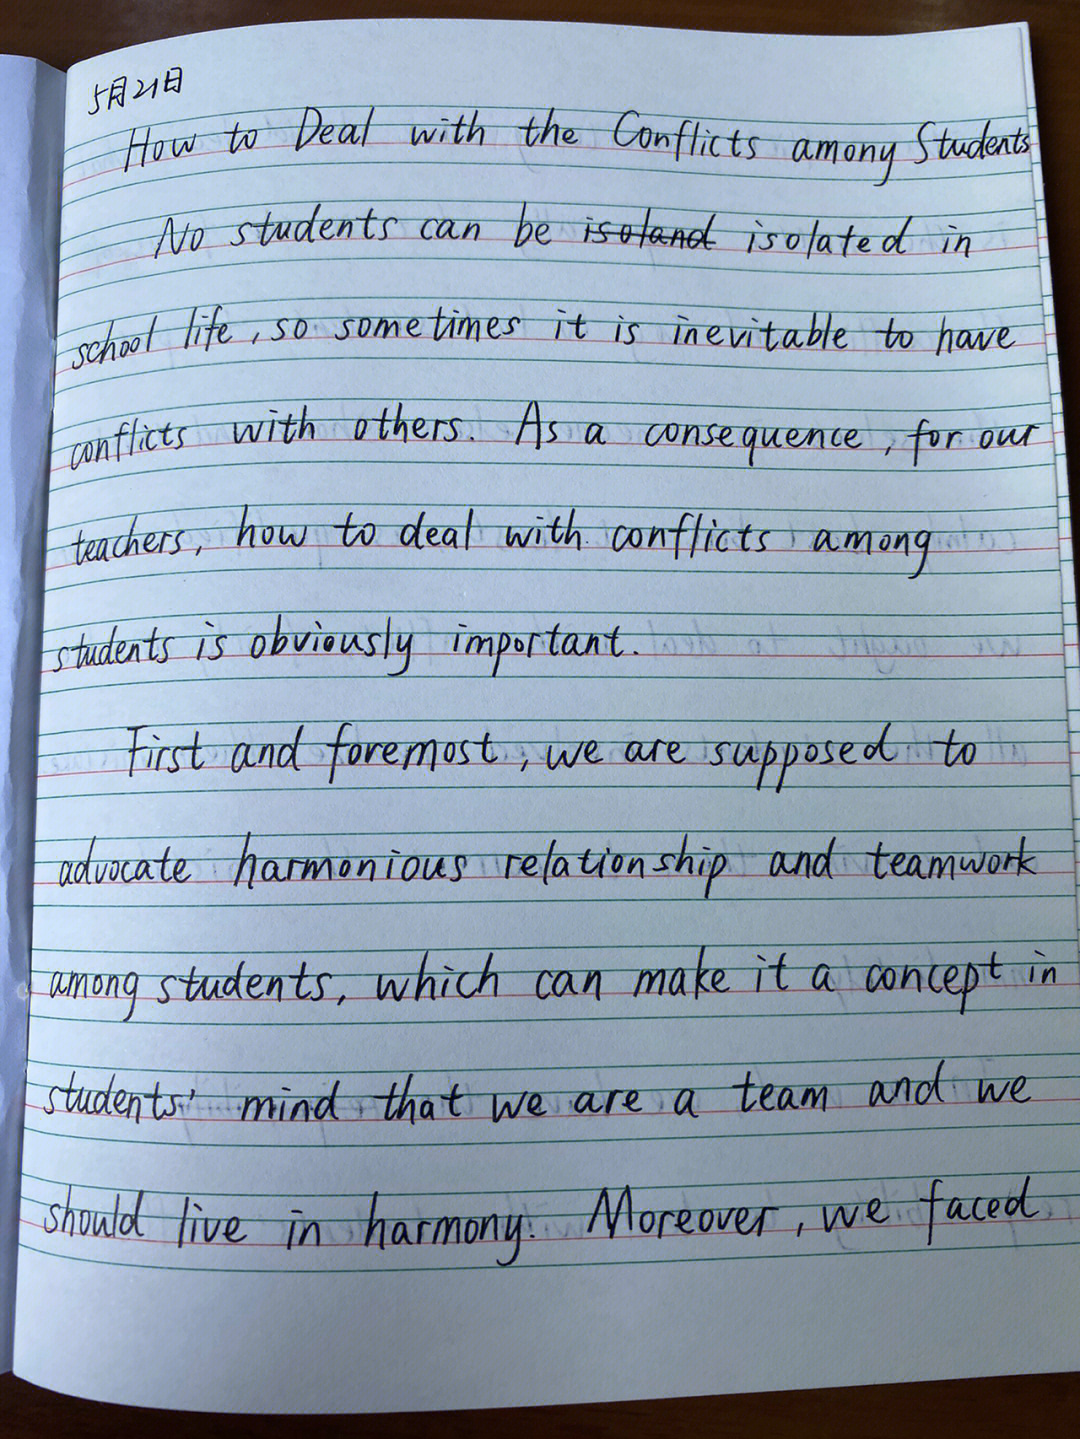 5月21日
How to Deal with the Conflicts among Students
No students can be isoland isolated in
school life, so sometimes it is inevitable to have
conflicts with others. As a consequence, for our
teachers, how to deal with conflicts among
students is obviously important.
First and foremost, we are supposed to
advocate harmonious relationship and teamwork
among students, which can make it a concept in
students' mind that we are a team and we
should live in harmony. Moreover, we faced